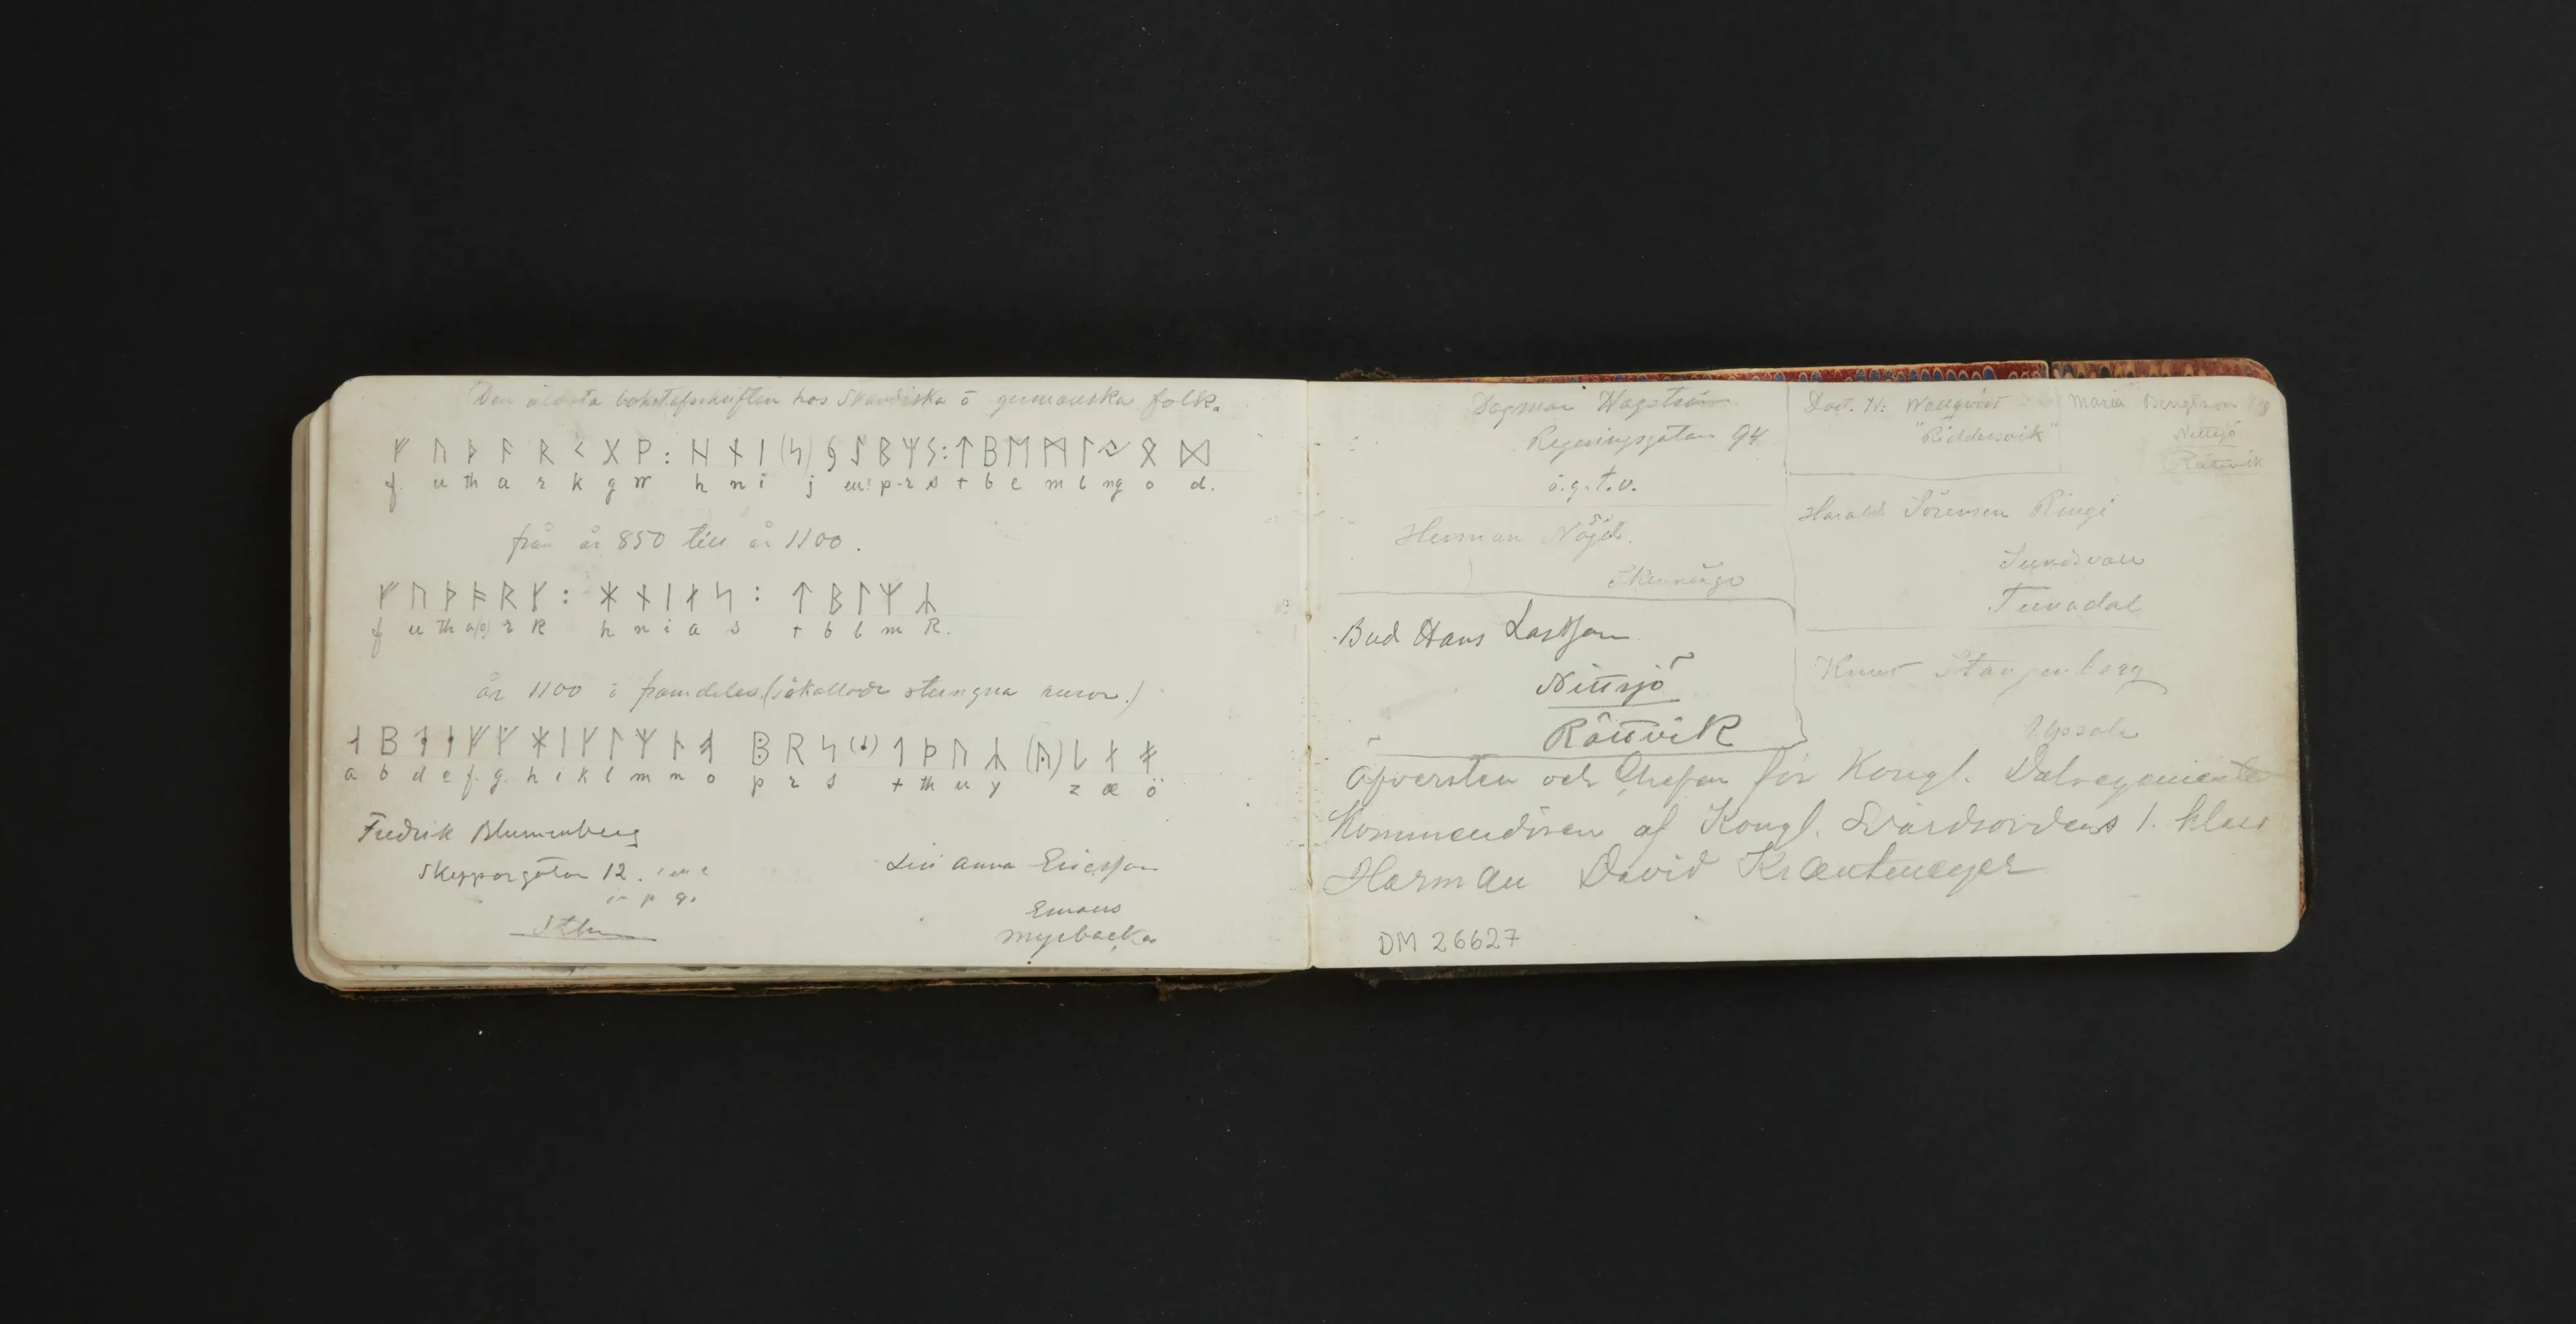 Den äldsta bokstafsskriften hos Skandiska o germanska folk.
ᚠ ᚢ ᚦ ᚨ ᚱ ᚲ ᚷ ᚹ : ᚺ ᚾ ᛁ (ᛃ) ᛇ ᛒ ᛉ ᛊ : ᛏ ᛒ ᛖ ᛗ ᛚ ᛜ ᛟ ᛞ
f u th a r k g w h n i j eu! p-r s t b e m l ng o d.
från år 850 till år 1100.
ᚠ ᚢ ᚦ ᚬ ᚱ ᚴ : ᚼ ᚾ ᛁ ᛅ ᛋ : ᛏ ᛒ ᛚ ᛉ ᛣ
f u th a(o) r k h n i a s t b l m R.
år 1100 o framdeles (såkallade stungna runor.)
a b d e f. g. h i k l m n o p r s t th u y z æ ö
Fredrik Blumenberg
Skeppargatan 12.
Sthm
Lin Anna Ericsson
Emaus
Myrbacka
Dagmar Wagström
Regeringsgatan 94
ö.g.t.v.
Herman
Skenninge
Bud Hans Larsson
Nittsjö
Rättvik
"Riddersvik"
Maria Bengtson
Nittsjö
Rättvik
Harald Sörensen Ringi
Sundsvall
Tunadal
Knut Stangenberg
Upsala
Öfversten och Chefen för Kongl. Dalregementet
Kommendören af Kongl. Svärdsordens 1. klass
Herman David Krautmeyer
DM 26627